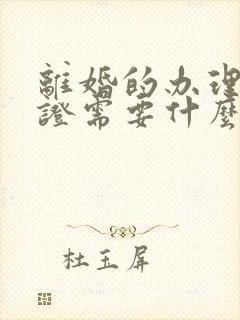 離婚的办理
證需要什麼
杜玉屏